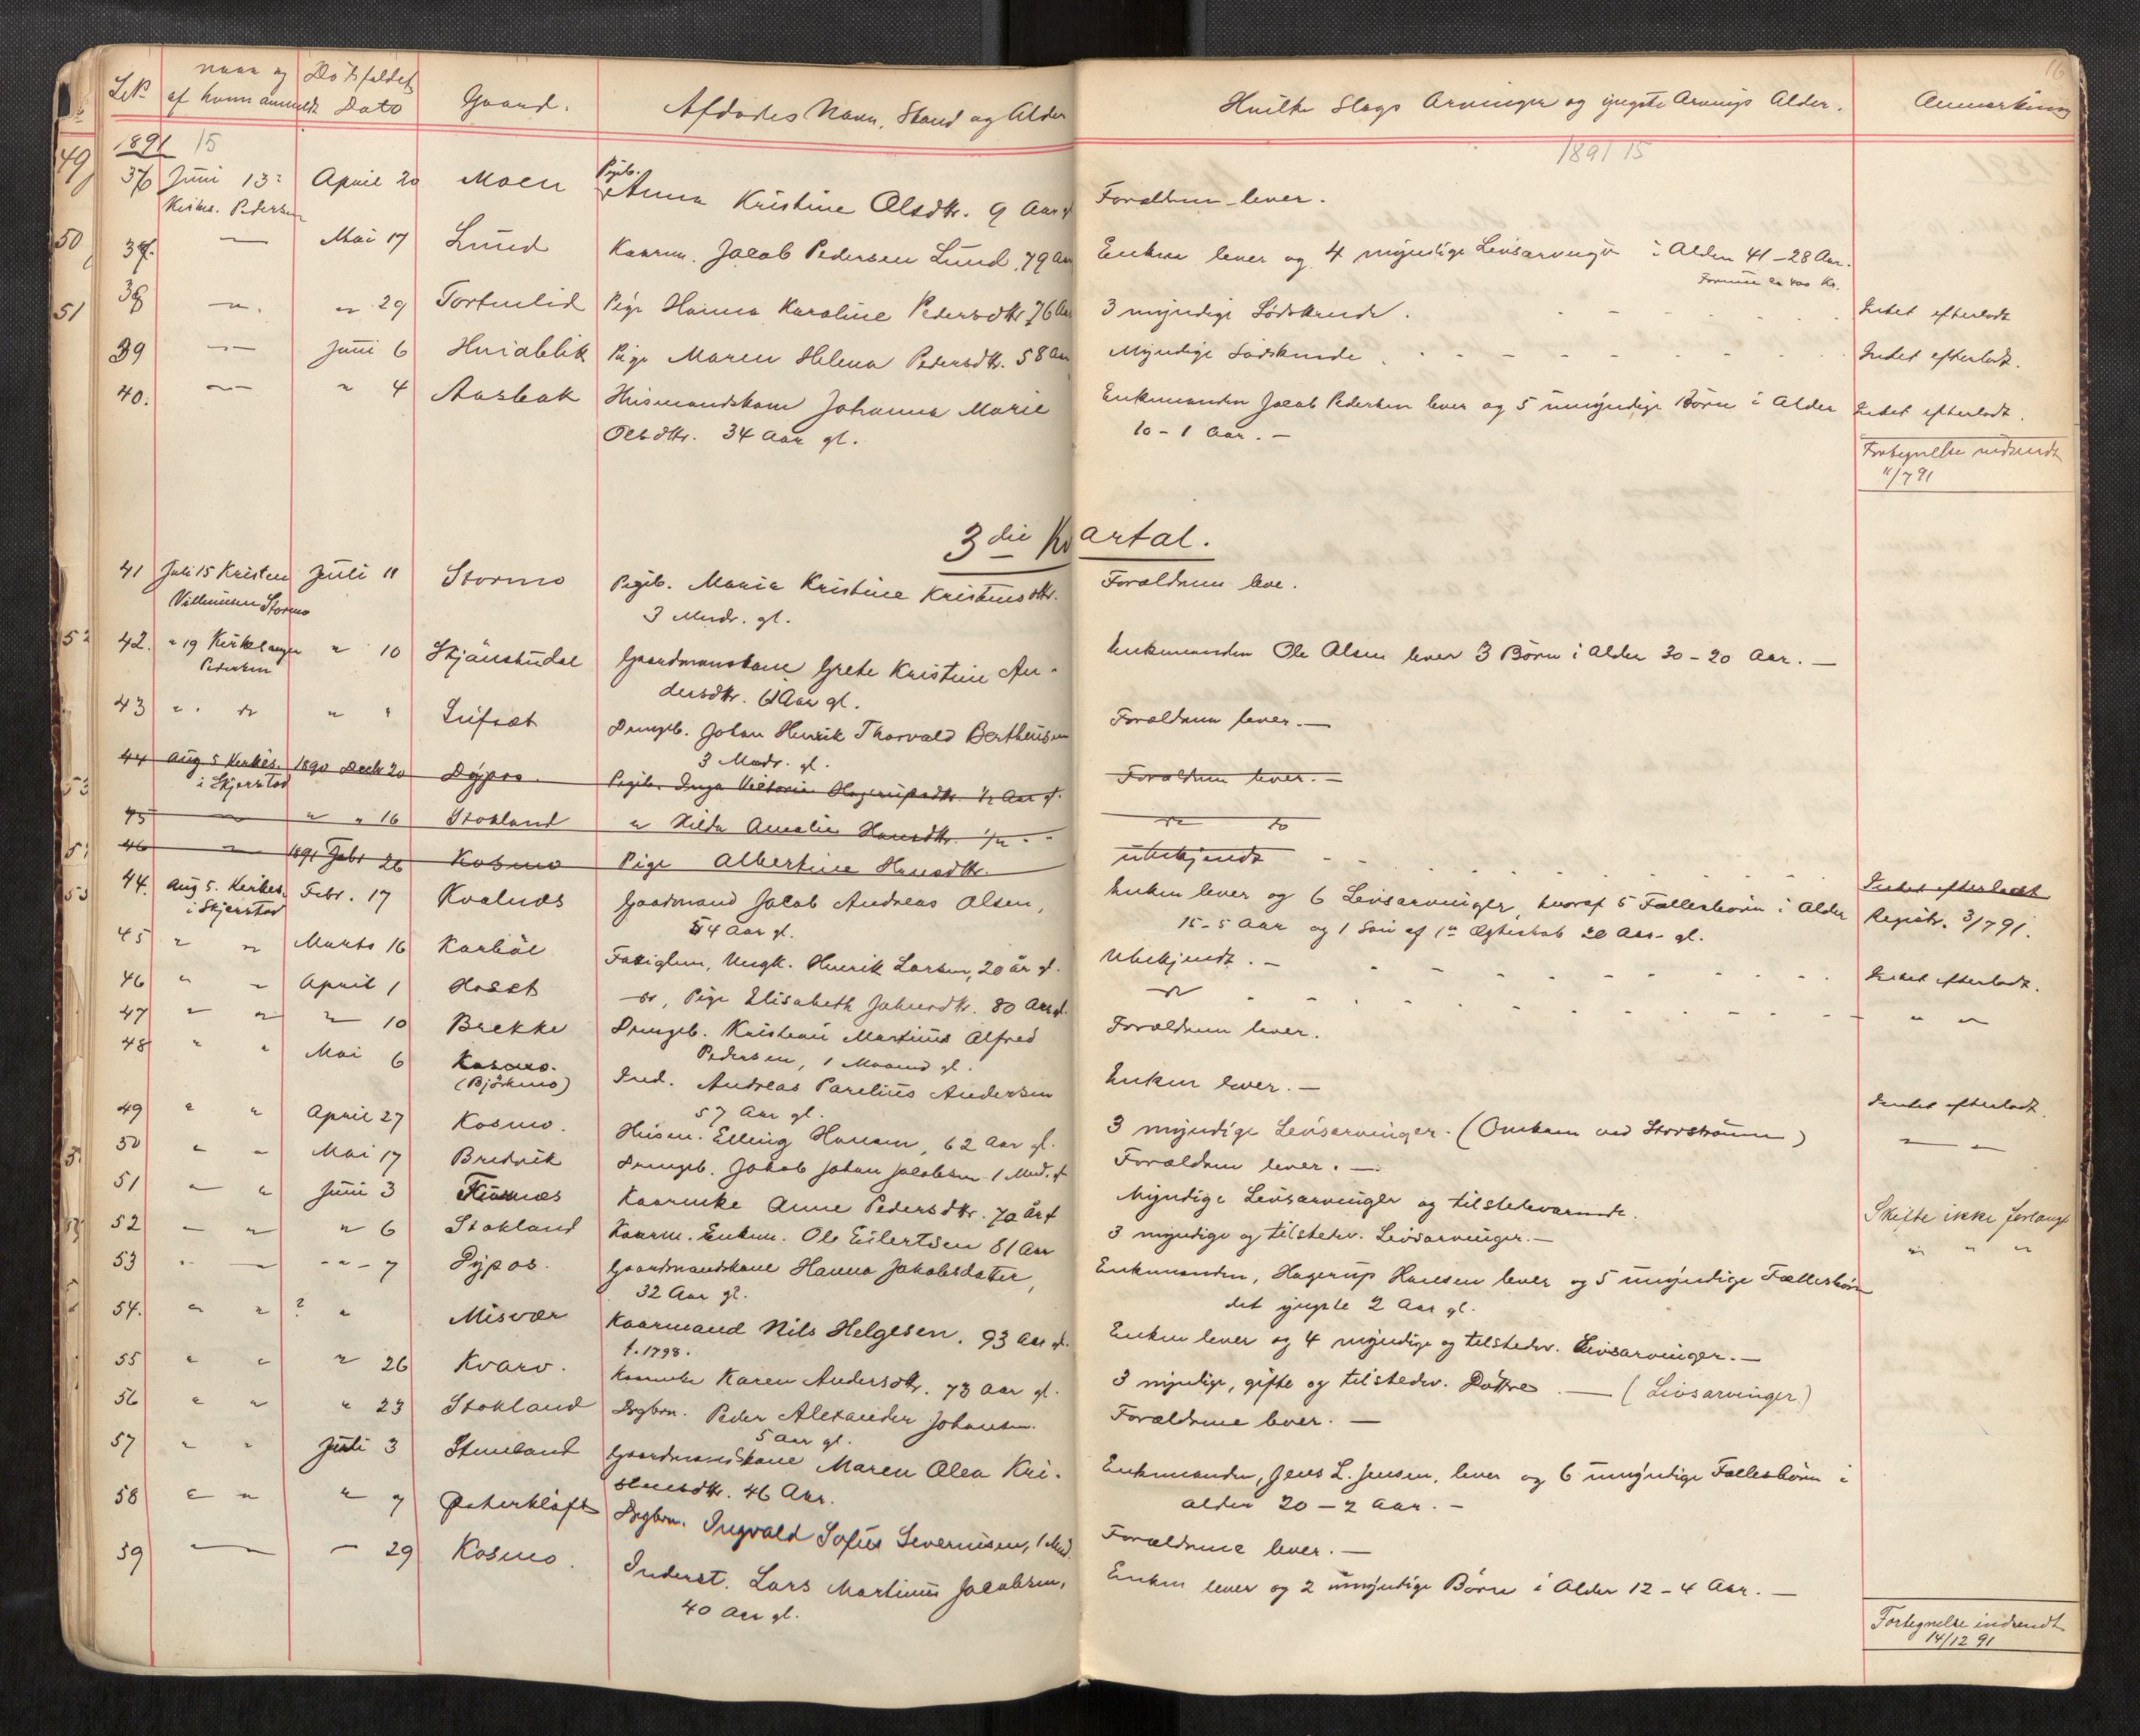 naar og Dödsfaldets
L.No af hvem anmeldt Dato Gaard. Afdødes Navn, Stand og Alder Hvilke Slags Arvinger og yngste Arvings Alder. Anmærkning
16
1891 15 1891 15
36 Juni 13 April 20 Moen Pigeb. Anna Kristine Olsdtr. 9 Aar gl Forældrene lever.
Kirkes. Pedersen
37. — Mai 17 Lund Kaarm. Jacob Pedersen Lund, 79 Aar Enken lever og 4 myndige Livsarvinger i Alder 41-28 Aar.
Formue ca 400 Kr.
38 — " 29 Tortenlid Pige Hanna Karoline Pedersdtr 76 Aar 3 myndige Södskende. Intet efterladt
39 — Juni 6 Hvidblik Pige Maren Helena Pedersdtr. 58 Aar Myndige Södskende. Intet efterladt.
40. — " 4 Aasbak Husmandskone Johanna Marie Enkemanden Jacob Pedersen lever og 5 umyndige Börn i Alder Intet efterladt.
Olsdtr. 34 Aar gl. 10-1 Aar. —
Fortegnelse indsendt
11/7 91
3die Kvartal.
41 Juli 15 Kristen Juli 11 Stormo Pigeb. Maria Kristine Kristensdtr. Forældrene leve.
Villumsen Stormo 3 Mndr. gl.
42. " 19 Kirkesanger " 10 Skjänstudal Gaardmanskone Grete Kristine An- Enkemanden Ole Olsen lever 3 Börn i Alder 30-20 Aar. —
Pedersen dersdtr. 61 Aar gl.
43 " " " " Lufsæt Drengeb. Johan Henrik Thorvald Berthinsen Forældrene lever. —
3 Mndr. gl.
44 Aug 5 Kirkes. 1890 Decbr 20 Dypos Pigeb. Inga Viktoria Hagerupsdtr. 1/2 Aar gl. Forældrene lever. —
i Skjerstad
45 — " " 16 Stokland " Hilda Amalie Hansdtr. 1/2 " " do do
46 — 1891 Febr 26 Kosmo Pige Albertine Hansdtr. ubekjendt
44. Aug 5. Kirkes. Febr. 17 Kvalnæs Gaardmand Jacob Andreas Olsen, Enken lever og 6 Livsarvinger, hvoraf 5 Fællesbörn i Alder Intet efterladt
i Skjerstad 54 Aar gl. 15-5 Aar og 1 Sön af 1ste Ægteskab 20 Aar gl. Registr. 3/7 91.
45 " " Marts 16 Karböl Fattiglem, Ungk. Henrik Larsen, 20 år gl. Ubekjendt. — Intet efterladt.
46 " " April 1 Hosæt do, Pige Elisabeth Johnsdtr. 80 Aar gl. do " "
47 " " " 10 Brekke Drengeb. Kristian Martinus Alfred Forældrene lever.
Pedersen, 1 Maaned gl.
48 " " Mai 6 Kosmo. Ind. Andreas Parelius Andersen Enken lever. — Intet efterladt.
(Björkmo) 57 Aar gl.
49 " " April 27 Kosmo. Husm. Elling Hansen, 62 Aar gl. 3 myndige Livsarvinger. (Omkom ved Storströmm) — —
50 " " Mai 17 Bredvik Drengeb. Jakob Johan Jacobsen 1 Mnd. gl Forældrene lever. —
51 " " Juni 3 Finnæs Kaarenke Anne Pedersdtr. 70 år gl Myndige Livsarvinger og tilstedeværende. Skifte ikke forlangt
52 " " " 6 Stokland Kaarm. Enkem. Ole Eilertsen 81 Aar 3 myndige og tilstedev. Livsarvinger. — " " "
53 " — " 7 Dypos. Gaardmandskone Hanna Jakobsdatter, Enkemanden, Hagerup Hansen lever og 5 umyndige Fællesbörn
32 Aar gl. det yngste 2 Aar gl.
54. " " ? " Misvær Kaarmand Nils Helgesen. 93 Aar gl. Enken lever og 4 myndige og tilstedev. Livsarvinger. —
f. 1798.
55 " " " 26 Kvarv. Kaarenke Karen Andersdtr. 73 Aar gl. 3 myndige, gifte og tilstedev. Döttre. — (Livsarvinger)
56 " " " 23 Stokland Drgbrn. Peder Alexander Johansen. Forældrene lever. —
5 Aar gl.
57 " " Juli 3 Stenland Gaardmandskone Maren Olea Kri- Enkemanden, Jens L. Jensen, lever og 6 umyndige Fællesbörn i
stensdtr. 46 Aar. alder 20-2 Aar. —
58 " " " 7 Österkløft Drgbrn. Ingvald Sofus Severinsen, 1 Mnd. Forældrene lever. —
59 — — 29 Kosmo. Inderst. Lars Martinus Jacobsen, Enken lever og 2 umyndige Börn i Alder 12-4 Aar. —
40 Aar gl.
Fortegnelse indsendt
14/12 91